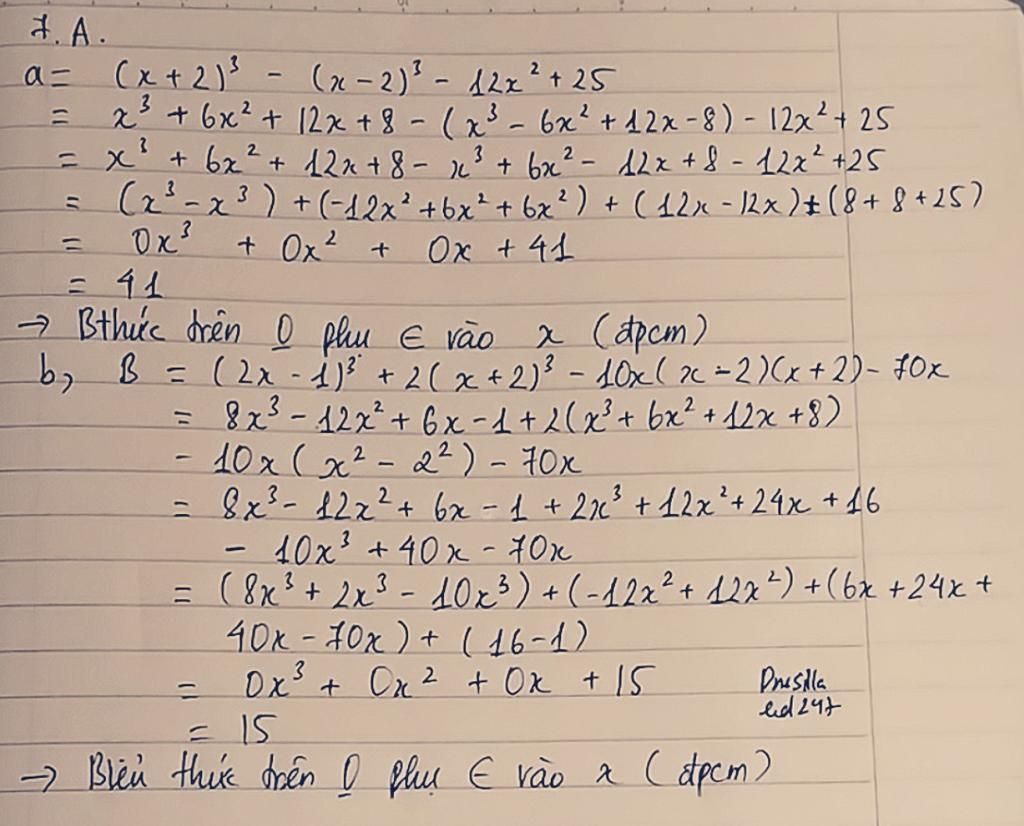 7. A.
a = (x + 2)³ - (x - 2)³ - 12x² + 25
= x³ + 6x² + 12x + 8 - (x³ - 6x² + 12x - 8) - 12x² + 25
= x³ + 6x² + 12x + 8 - x³ + 6x² - 12x + 8 - 12x² + 25
= (x³ - x³) + (-12x² + 6x² + 6x²) + (12x - 12x) + (8 + 8 + 25)
= 0x³ + 0x² + 0x + 41
= 41
→ Bthức trên O̲ phụ ∈ vào x (đpcm)
b, B = (2x - 1)³ + 2(x + 2)³ - 10x(x - 2)(x + 2) - 70x
= 8x³ - 12x² + 6x - 1 + 2(x³ + 6x² + 12x + 8)
- 10x(x² - 2²) - 70x
= 8x³ - 12x² + 6x - 1 + 2x³ + 12x² + 24x + 16
- 10x³ + 40x - 70x
= (8x³ + 2x³ - 10x³) + (-12x² + 12x²) + (6x + 24x +
40x - 70x) + (16 - 1)
= 0x³ + 0x² + 0x + 15
Drusilla
ed247
= 15
→ Biểu thức trên O̲ phụ ∈ vào x (đpcm)